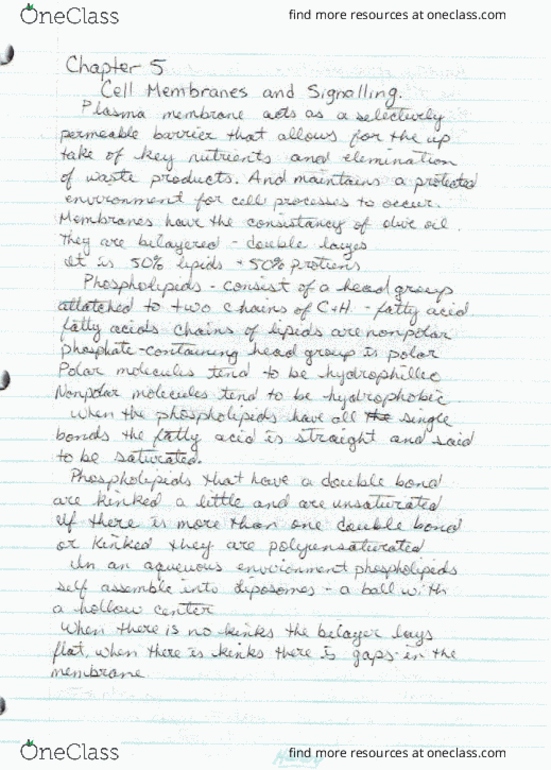 OneClass find more resources at oneclass.com
Chapter 5
Cell Membranes and Signalling.
Plasma membrane acts as a selectively
permeable barrier that allows for the up
take of key nutrients and elemination
of waste products. And maintains a protected
environment for cell processes to occur.
Membranes have the consistancy of olive oil.
They are bilayered - double layes
It is 50% lipids + 50% protiens
Phospholipids - consist of a head group
attatched to two chains of C+H. - fatty acid
fatty acids chains of lipids are nonpolar
phosphate-containing head group is polar
Polar molecules tend to be hydrophillic
Nonpolar molecules tend to be hydrophobic
When the phospholipids have all the single
bonds the fatty acid is straight and said
to be saturated.
Phospholipids that have a double bond
are kinked a little and are unsaturated
If there is more than one double bond
or kinked they are polyunsaturated
In an aqueuous environment phospholipids
self assemble into liposomes - a ball with
a hollow center
When there is no kinks the bilayer lays
flat, when there is kinks there is gaps in the
membrane
OneClass find more resources at oneclass.com